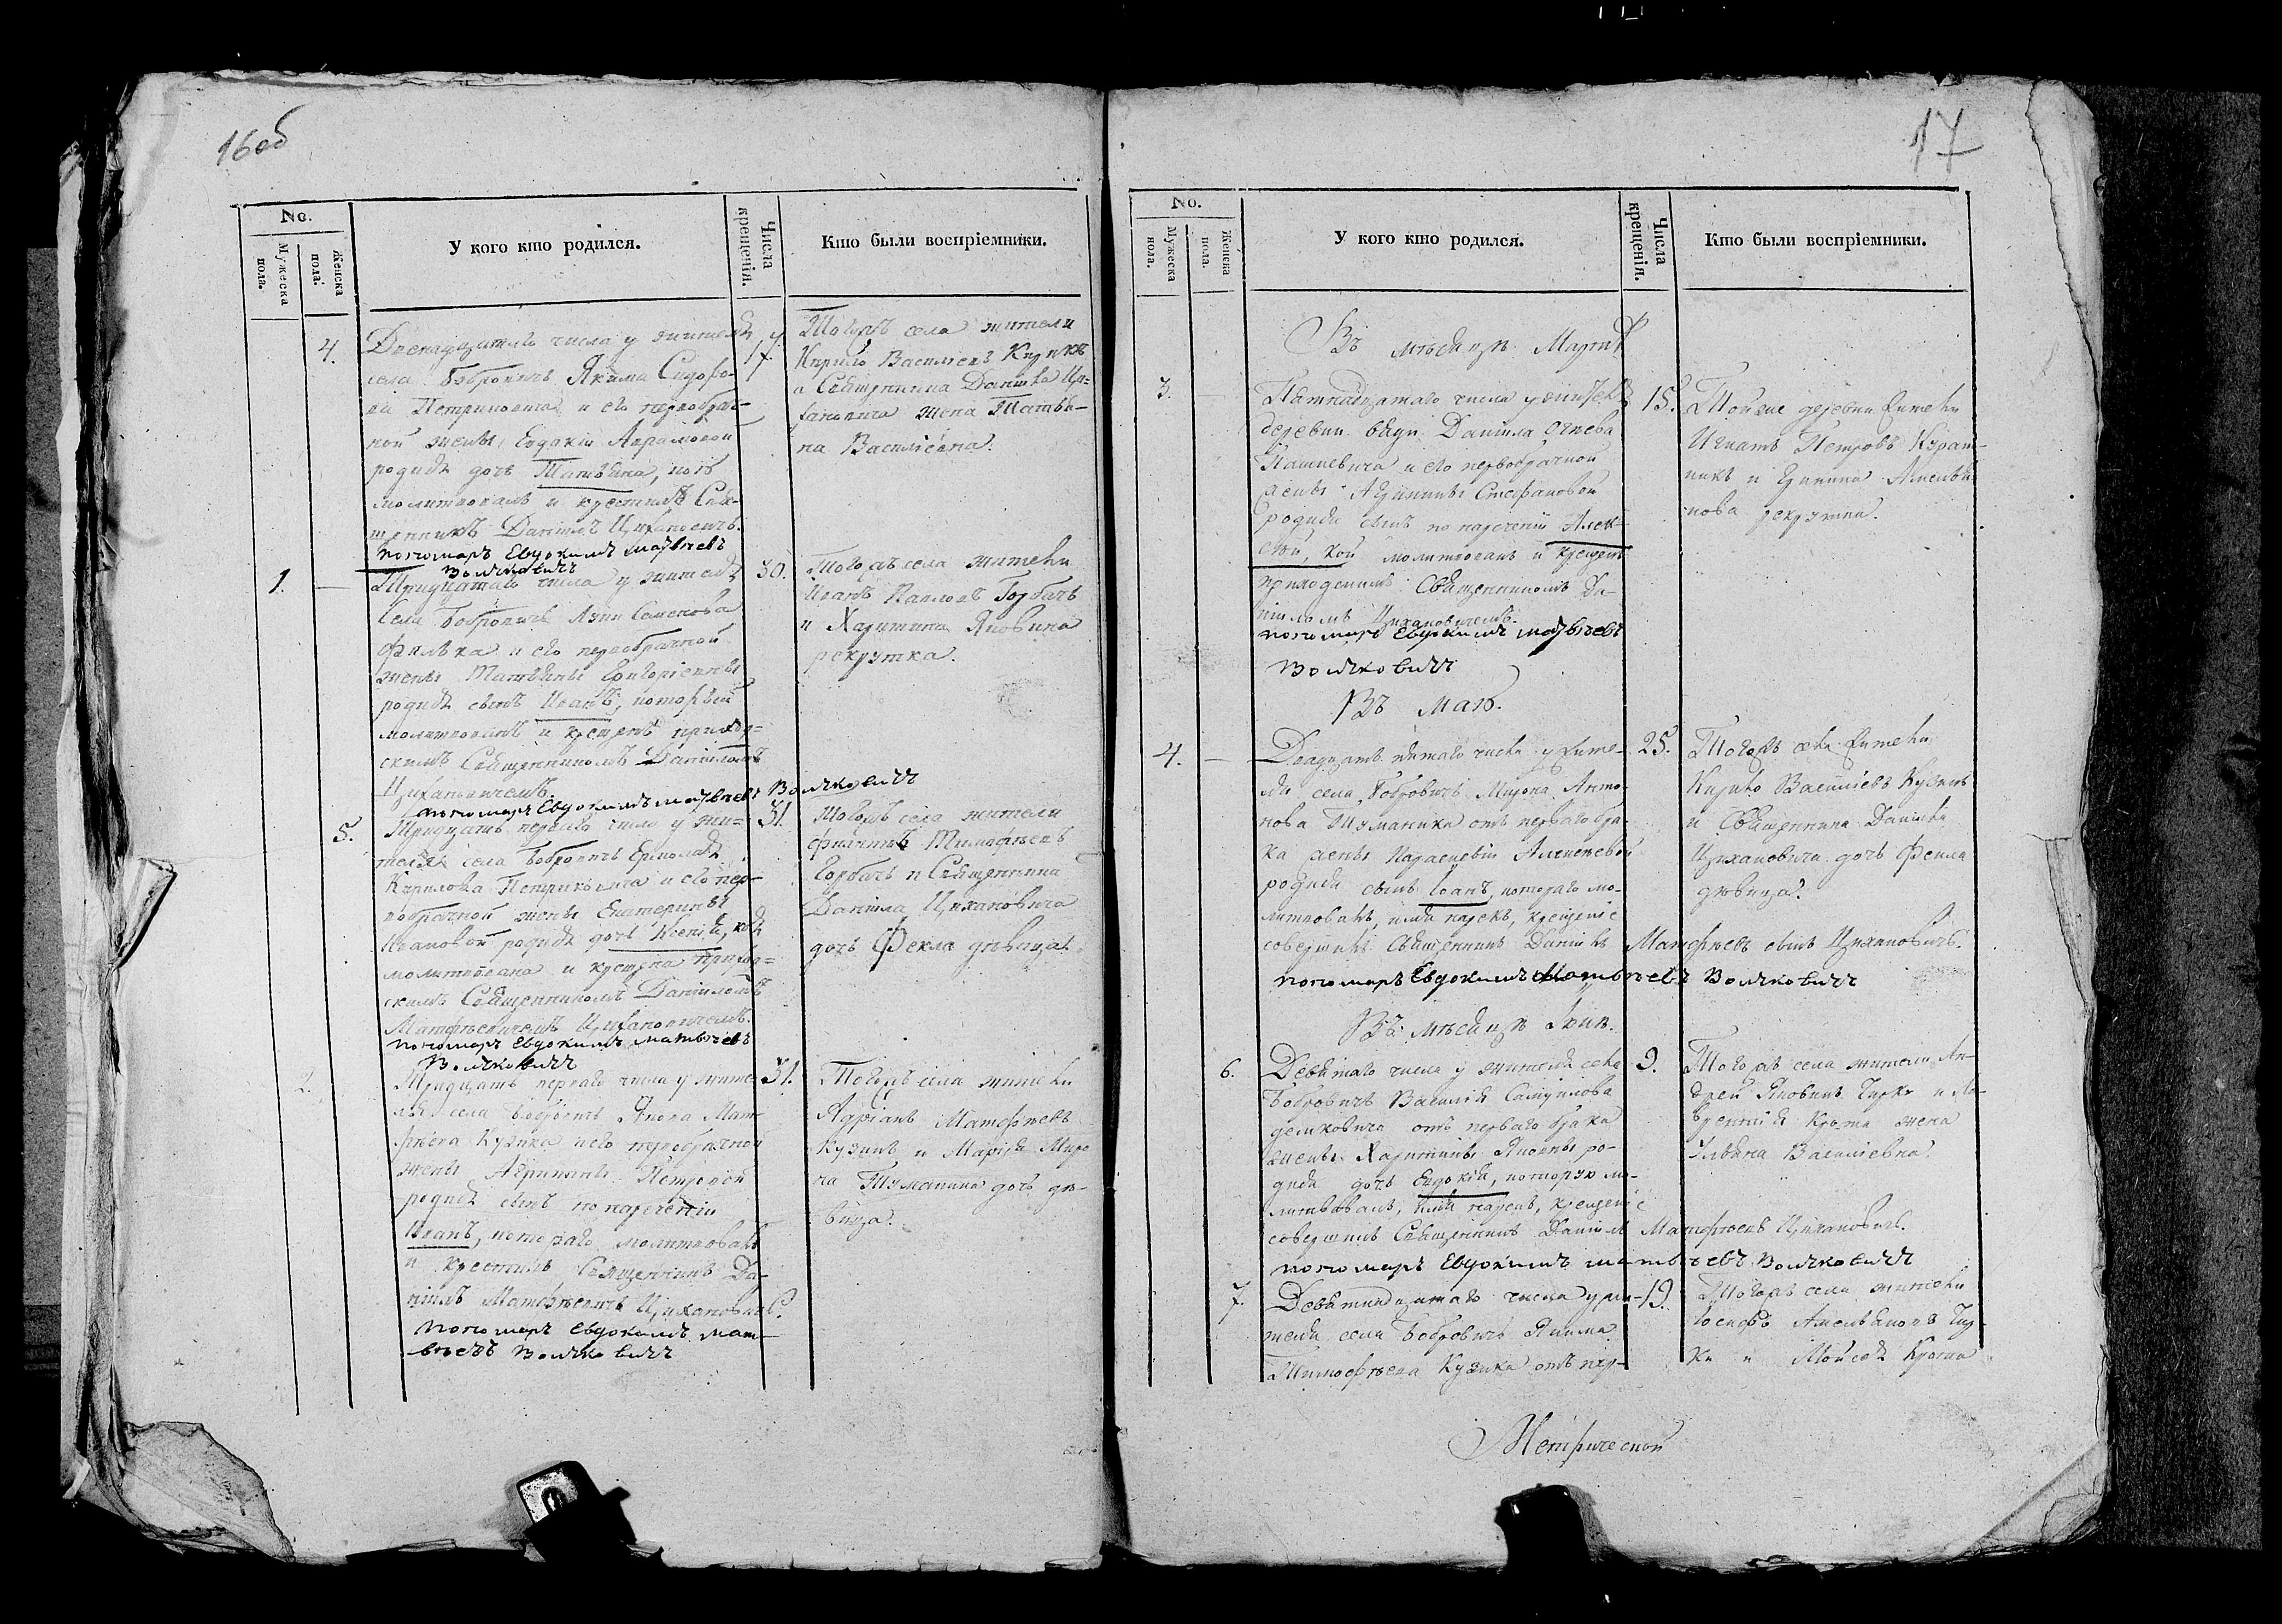 16 об
No.
Мужеска пола.
Женска пола.
У кого кто родился.
Числа крещенія.
Кто были воспріемники.
4.
Двенадцатаго числа у жителя
села Бобровичъ Якима Сидоро-
ва Петриковича и его первобрач-
ной жены Евдакіи Авраамовой
родися дочь Татьяна, коя
молитвовалъ и крестилъ Свя-
щенникъ Даніилъ Цихановичъ.
пономарь Евдокимъ Матвѣевъ
Волчковичъ
17.
Тогожъ села жители
Кирило Василіевъ Кузикъ
и Священника Даніила Ци-
хановича жена Татьѣ-
на Василіевна.
1.
Тридцатаго числа у жителя
Села Бобровичъ Семенова
и его первобрачной
жены Татьяны Григоріевны
родися сынъ Иванъ, который
молитвованъ и крещенъ приход-
скимъ Священникомъ Даніиломъ
Цихановичемъ.
пономарь Евдокимъ Матвѣевъ Волчковичъ
30.
Тогожъ села жители
Иванъ Павловъ Горбачъ
и Харитина Яковина
рекрутка.
5.
Тридцать перваго числа у жи-
теля села Бобровичъ Ермолая
Кирилова Петриковича и его пер-
вобрачной жены Екатерины
Ивановой родися дочь Ксенія, коя
молитвована и крещена приход-
скимъ Священникомъ Даніиломъ
Матфѣевичемъ Цихановичемъ.
пономарь Евдокимъ Матвѣевъ
Волчковичъ
31.
Тогожъ села жители
Филиппъ Тимофѣевъ
Горбачъ и Священника
Даніила Цихановича
дочь Фекла дѣвица.
2.
Тридцать перваго числа у жите-
ля села Бобровичъ Якова Мат-
фѣева Кузика и его первобрачной
жены Агрипины Петровой
родися сынъ по наречению
Иванъ, котораго молитвовалъ
и крестилъ Священникъ Да-
ніилъ Матфѣевичъ Цихановичъ.
пономарь Евдокимъ Мат-
вѣевъ Волчковичъ
31.
Тогожъ села жители
Адріанъ Матфѣевъ
Кузикъ и Марія Миро-
на Туманика дочь дѣ-
вица.
17
No.
Мужеска пола.
Женска пола.
У кого кто родился.
Числа крещенія.
Кто были воспріемники.
Въ мѣсяцѣ Мартѣ
3.
Пятнадцатаго числа у жителя
деревни Даніила
Пашкевича и его первобрачной
жены Агрипины Стефановой
родися сынъ по наречению Алек-
сѣй, кой молитвованъ и крещенъ
приходскимъ Священникомъ Да-
ніиломъ Цихановичемъ.
пономарь Евдокимъ Матвѣевъ
Волчковичъ
15.
Тойже деревни жители
Игнатъ Петровъ
и Амелья-
нова рекрутка.
Въ Маѣ.
4.
Двадцать пятаго числа у жите-
ля села Бобровичъ Мирона Анто-
нова Туманика отъ перваго бра-
ка жены Параскевіи Алексѣевой
родися сынъ Іоанъ, котораго мо-
литвовалъ, имя нарекъ, крещеніе
совершилъ Священникъ Даніилъ Матфѣевъ сынъ Цихановичъ.
пономарь Евдокимъ Матвѣевъ Волчковичъ
25.
Тогожъ села жители
Кирило Василіевъ Кузикъ
и Священника Даніила
Цихановича дочь Фекла
дѣвица.
Въ мѣсяцѣ Іюнѣ.
6.
Девятаго числа у жителя села
Бобровичъ Василія Самуилова
Демковича отъ перваго брака
жены Харитины Яковны ро-
дися дочь Евдокія, которую мо-
литвовалъ, имя нарекъ, крещеніе
совершилъ Священникъ Даніилъ Матфѣевъ Цихановичъ.
пономарь Евдокимъ Матвѣевъ Волчковичъ
9.
Тогожъ села жители Ан-
дрей Яковинъ и Ла-
врентія Крота жена
Ульяна Василіевна.
7.
Девятнадцатаго числа у жи-
теля села Бобровичъ Якима
Тимофѣева Кузика отъ пер-
19.
Тогожъ села жители
Іосифъ Амельяновъ
и Мойсея Крота
Метрической